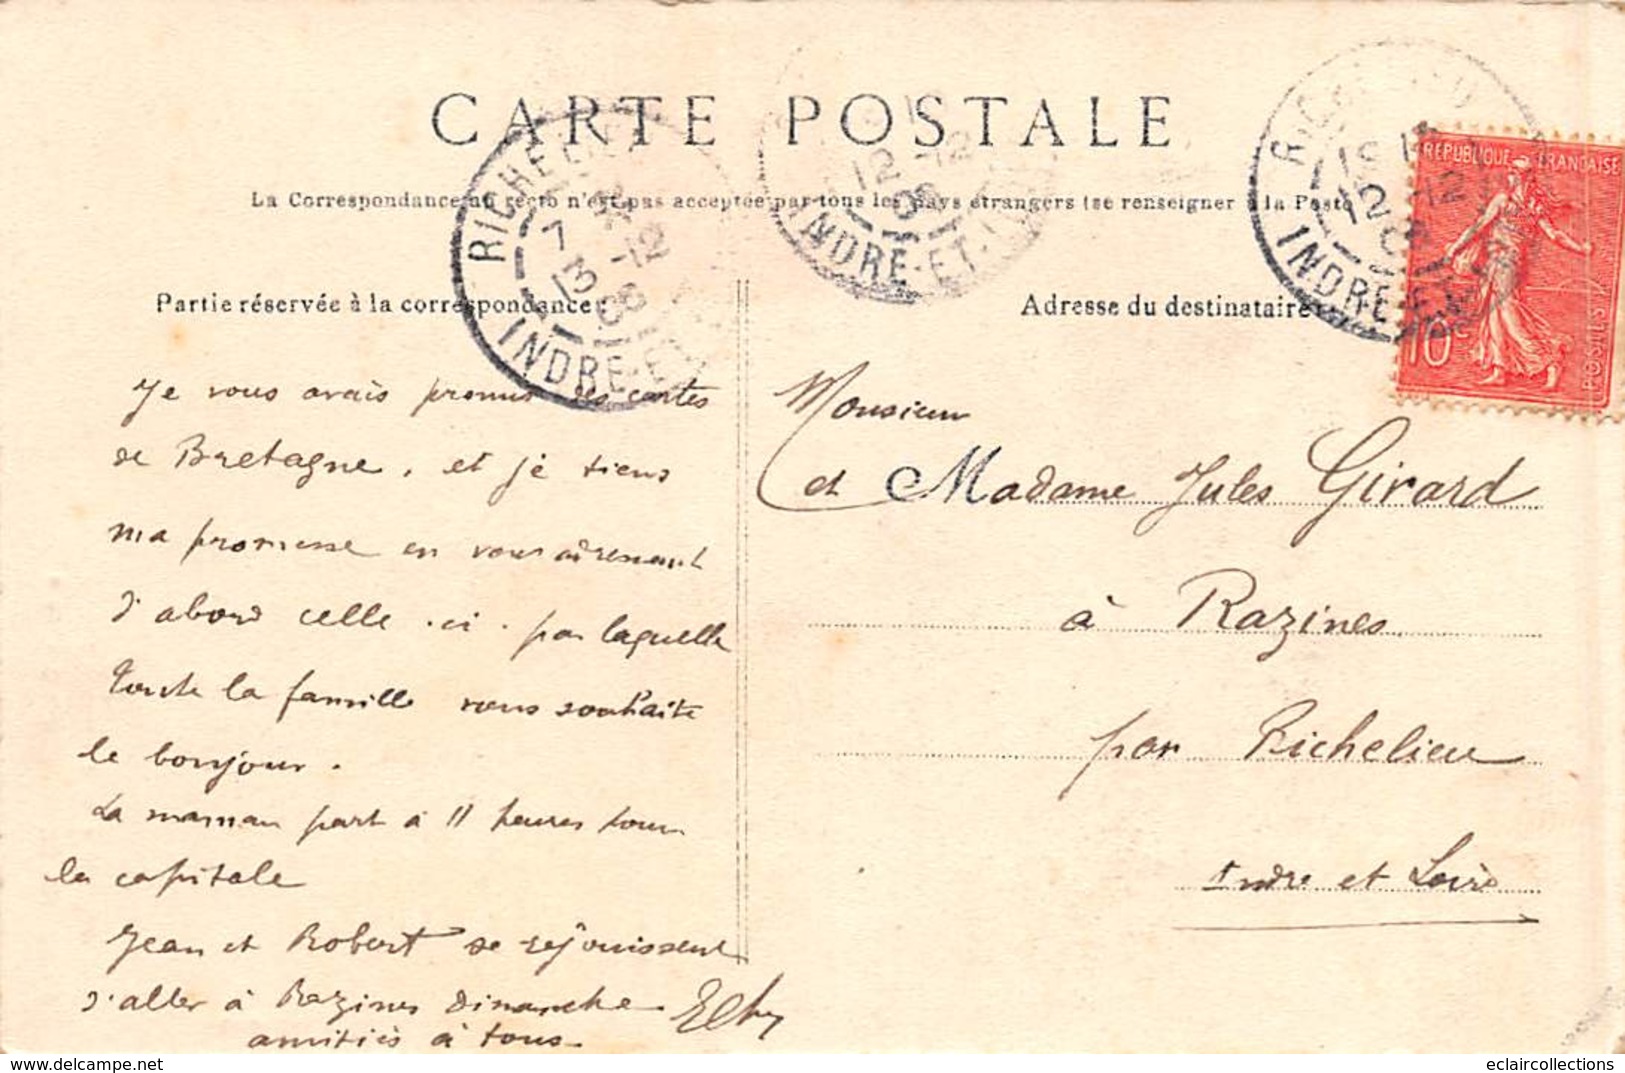 CARTE POSTALE
La Correspondance au recto n'est pas acceptée par tous les pays étrangers (se renseigner à la Poste
Partie réservée à la correspondance
Adresse du destinataire
RICHELIEU
7
13 -12
08
INDRE-ET-
12 -12
08
INDRE-ET-L
12 -12
INDRE-ET-L
REPUBLIQUE FRANÇAISE
10c
POSTES
Je vous avais promis des cartes
de Bretagne, et je tiens
ma promesse en vous adressant
d'abord celle-ci - par laquelle
toute la famille vous souhaite
le bonjour.
La maman part à 11 heures pour
la capitale
Jean et Robert se rejouissent
d'aller à Razines Dimanche
amitiés à tous.
Monsieur
et Madame Jules Girard
à Razines
par Richelieu
Indre et Loire
eclaircollections